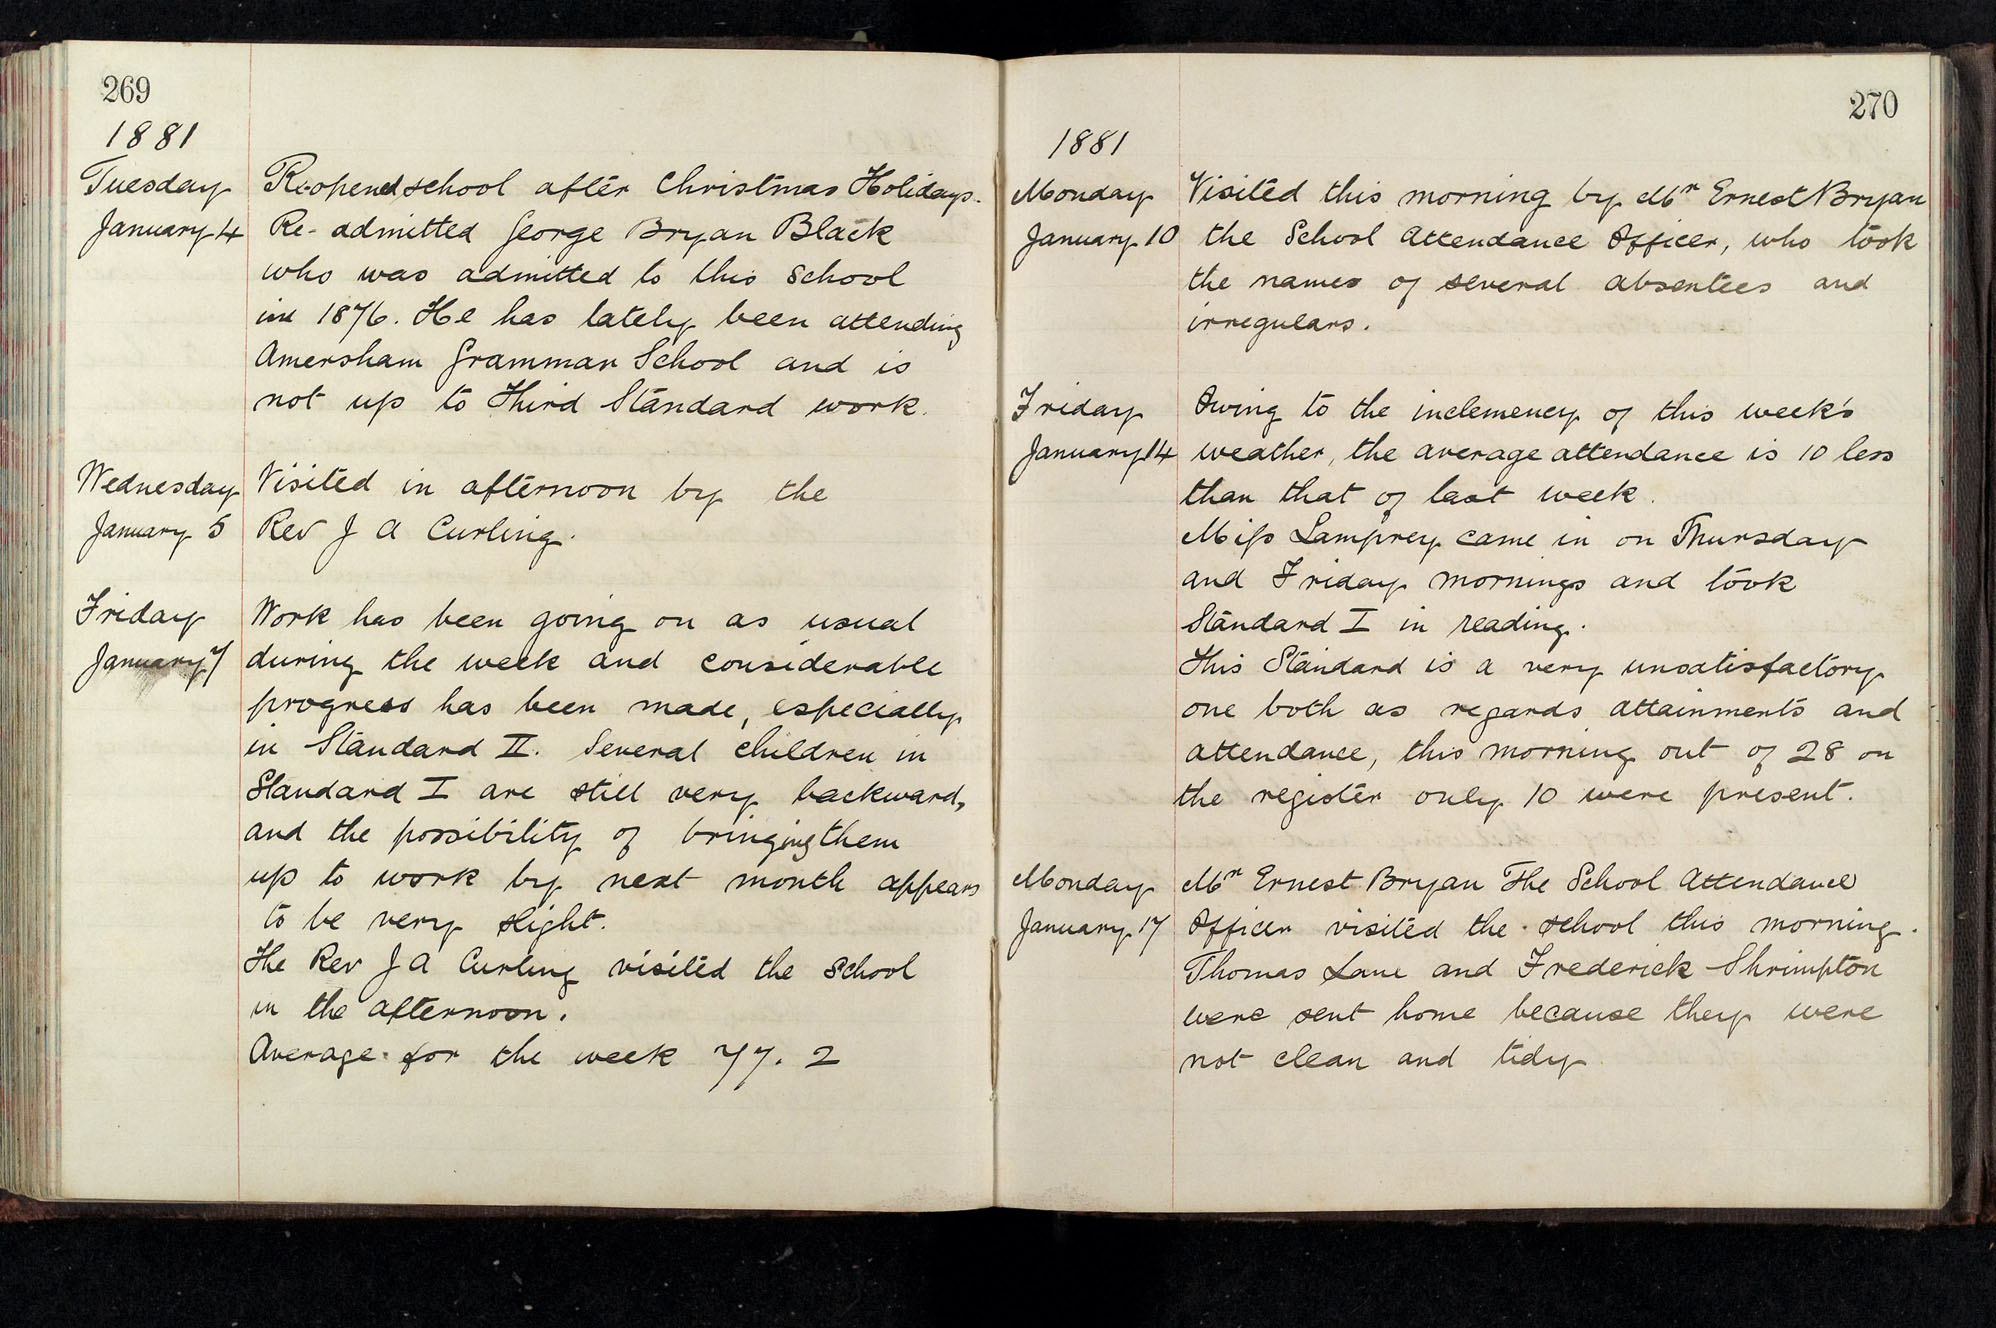 269
1881
Tuesday Re-opened school after Christmas Holidays.
January 4 Re-admitted George Bryan Black
who was admitted to this school
in 1876. He has lately been attending
Amersham Grammar School and is
not up to Third Standard work.
Wednesday Visited in afternoon by the
January 5 Rev J A Curling.
Friday Work has been going on as usual
January 7 during the week and considerable
progress has been made, especially
in Standard II. Several children in
Standard I are still very backward,
and the possibility of bringing them
up to work by next month appears
to be very slight.
The Rev J A Curling visited the school
in the afternoon.
Average for the week 77.2
270
1881
Monday Visited this morning by Mr Ernest Bryan
January 10 the School Attendance Officer, who took
the names of several absentees and
irregulars.
Friday Owing to the inclemency of this week's
January 14 weather, the average attendance is 10 less
than that of last week.
Miss Lamprey came in on Thursday
and Friday mornings and took
Standard I in reading.
This Standard is a very unsatisfactory
one both as regards attainments and
attendance, this morning out of 28 on
the register only 10 were present.
Monday Mr Ernest Bryan The School Attendance
January 17 Officer visited the school this morning.
Thomas Lane and Frederick Shrimpton
were sent home because they were
not clean and tidy